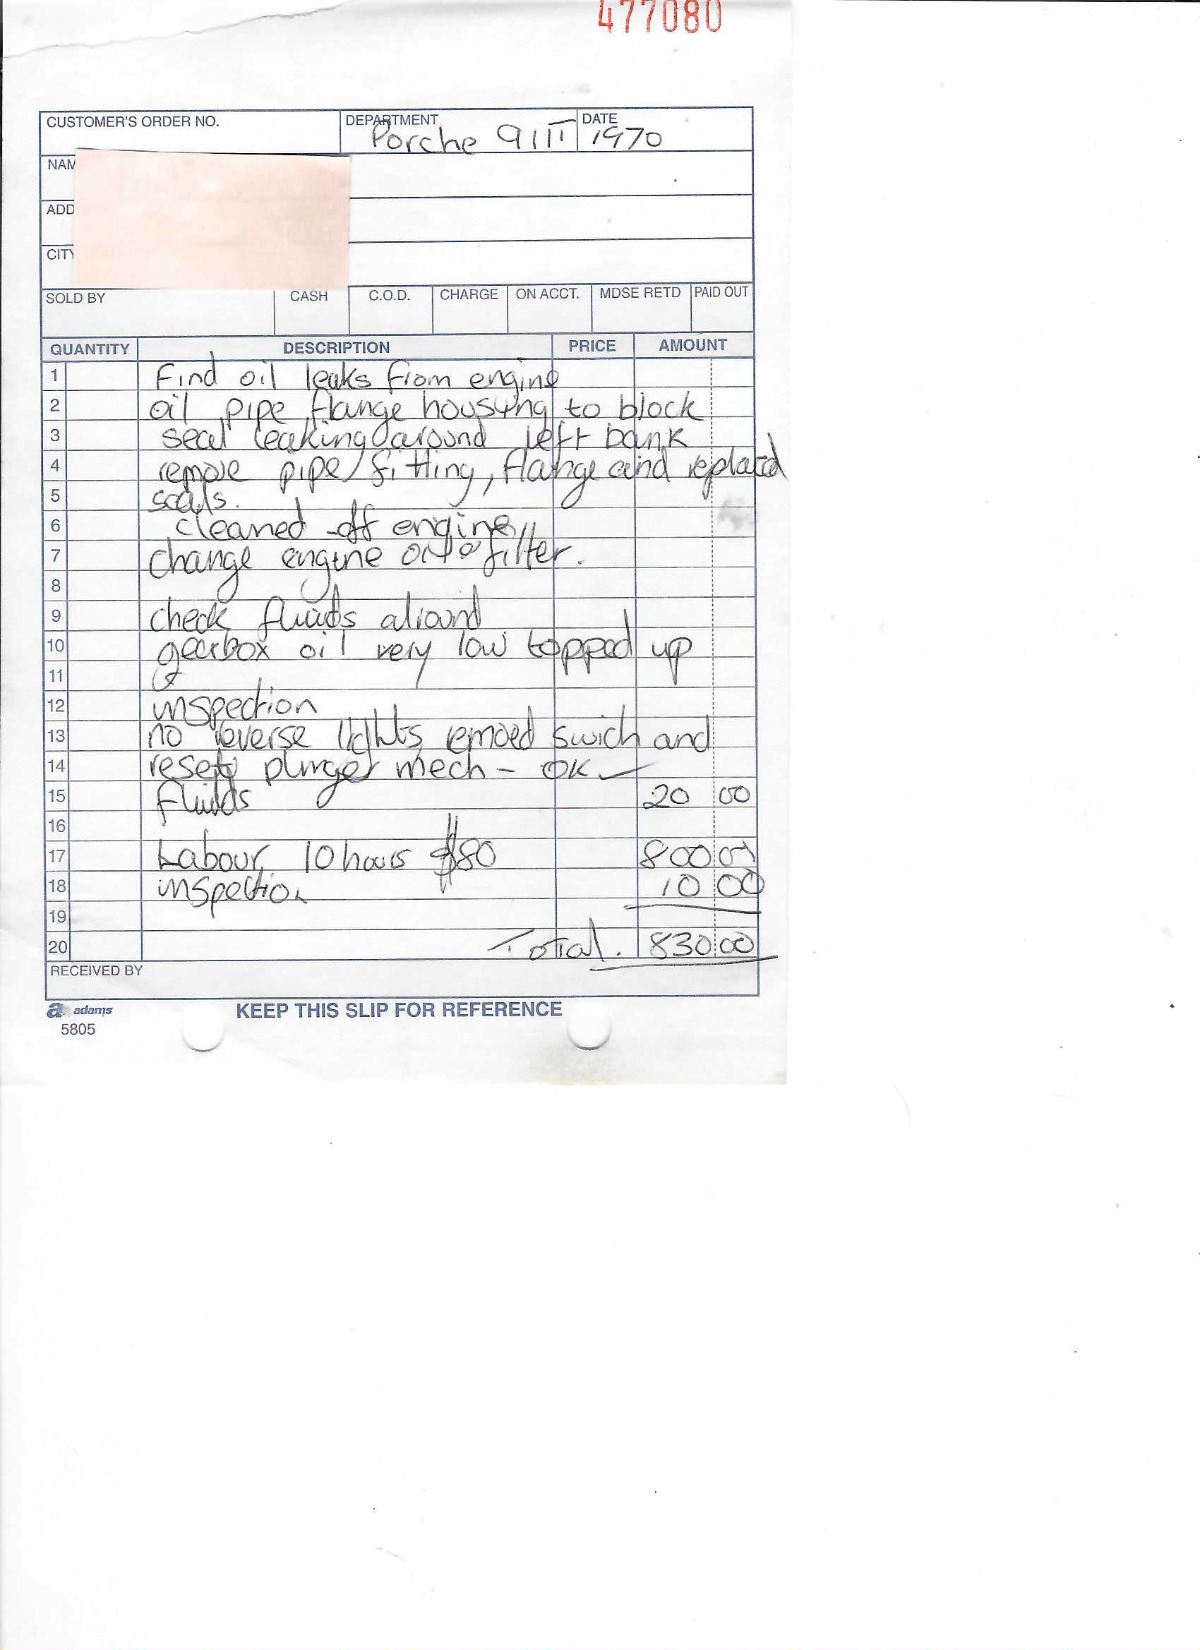 477080
CUSTOMER'S ORDER NO. DEPARTMENT DATE
Porche 911T 1970
NAM
ADD
CITY
SOLD BY CASH C.O.D. CHARGE ON ACCT. MDSE RETD PAID OUT
QUANTITY DESCRIPTION PRICE AMOUNT
1 Find oil leaks from engine
2 oil pipe flange housing to block
3 seal leaking around left bank
4 remove pipe/fitting, flange and replaced
5 seals.
6 cleaned off engine
7 change engine oil & filter.
8
9 check fluids around
10 gearbox oil very low topped up
11
12 inspection
13 no reverse lights, remoed swich and
14 reset plunger mech - OK
15 fluids 20 00
16
17 Labour 10 hours $80 800 00
18 inspection 10 00
19
20 Total. 830 00
RECEIVED BY
a adams KEEP THIS SLIP FOR REFERENCE
5805